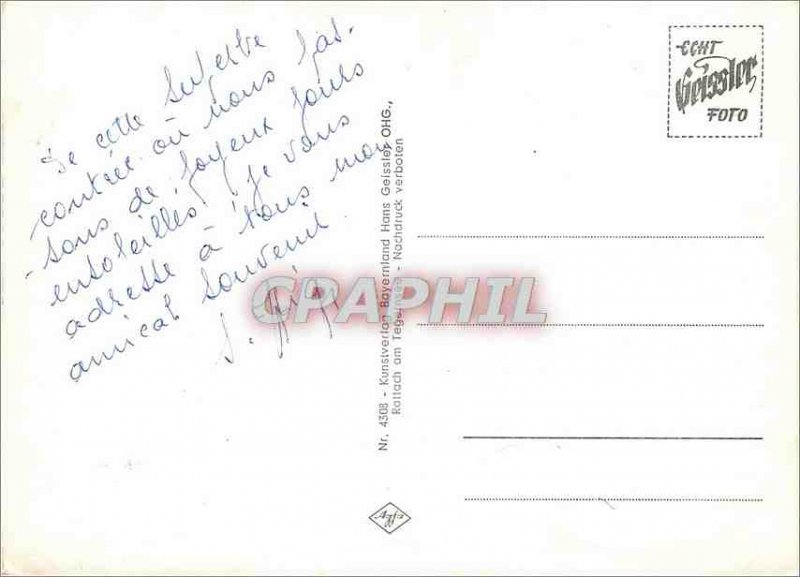 De cette superbe
contrée où nous pas-
sons de joyeux jours
ensoleillés je vous
adresse à tous mon
amical souvenir.
CPARPHIL
Nr. 4308 - Kunstverlag Bayernland Hans Geissler OHG.,
Rottach am Tegernsee - Nachdruck verboten
ECHT
Geissler
FOTO
Agfa